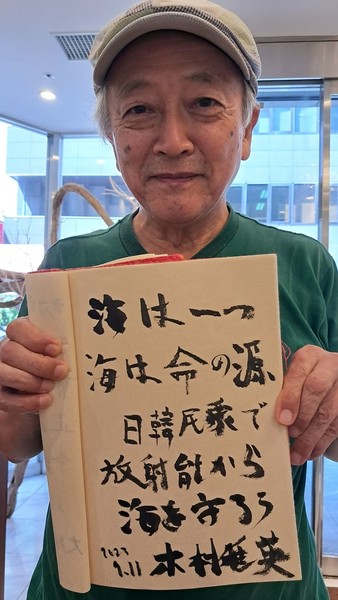 海は一つ
海は命の源
日韓民衆で
放射能から
海を守ろう
木村